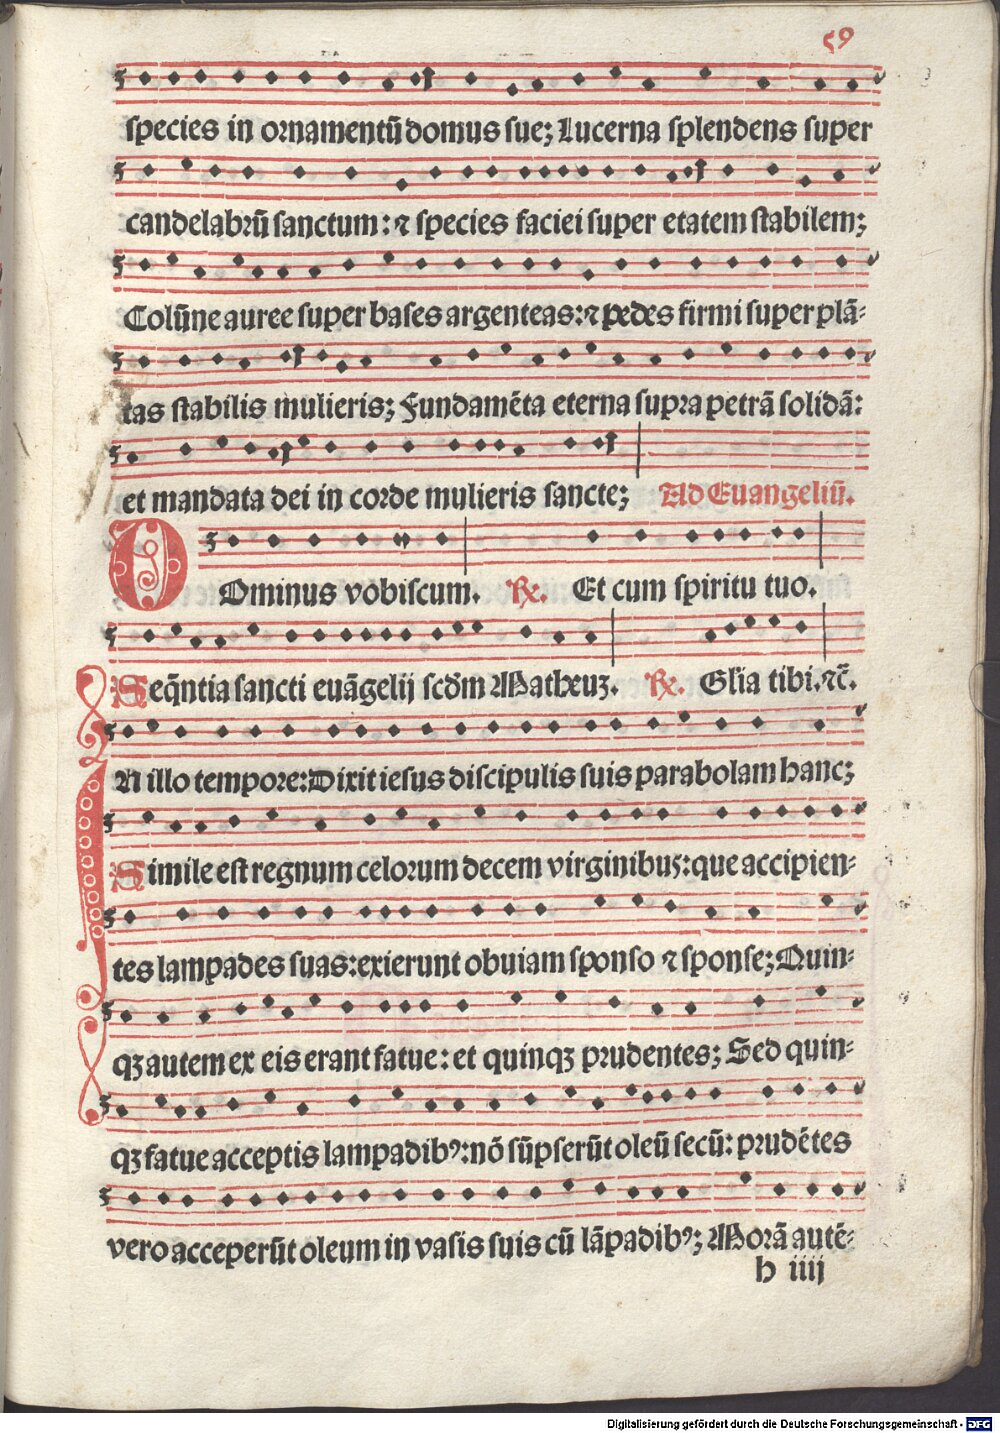 59
species in ornamentū domus sue; Lucerna splendens super
candelabrū sanctum: ⁊ species faciei super etatem stabilem;
Colūne auree super bases argenteas: ⁊ pedes firmi super plā-
tas stabilis mulieris; Fundamēta eterna supra petrā solidā:
et mandata dei in corde mulieris sancte; Ad Euangeliū.
DOminus vobiscum. ℟. Et cum spiritu tuo.
Seq̄ntia sancti euāgelij scd̄m Matheuȝ. ℟. Gl̄ia tibi.⁊c̄.
IN illo tempore: Dixit iesus discipulis suis parabolam hanc;
Simile est regnum celorum decem virginibus: que accipien-
tes lampades suas: exierunt obuiam sponso ⁊ sponse; Quin-
qȝ autem ex eis erant fatue: et quinqȝ prudentes; Sed quin-
qȝ fatue acceptis lampadibꝰ: nō sūpserūt oleū secū: prudētes
vero acceperūt oleum in vasis suis cū lāpadibꝰ; Morā autē-
h iiij
Digitalisierung gefördert durch die Deutsche Forschungsgemeinschaft - DFG